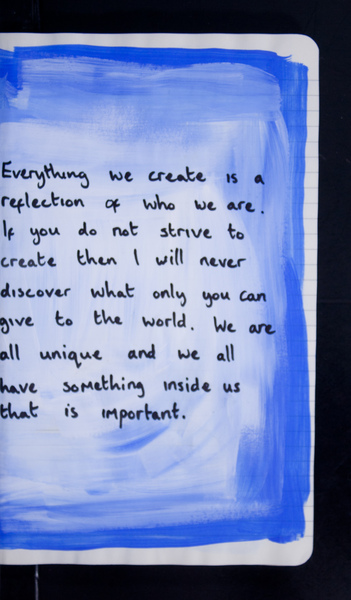 Everything we create is a
reflection of who we are.
If you do not strive to
create then I will never
discover what only you can
give to the world. We are
all unique and we all
have something inside us
that is important.